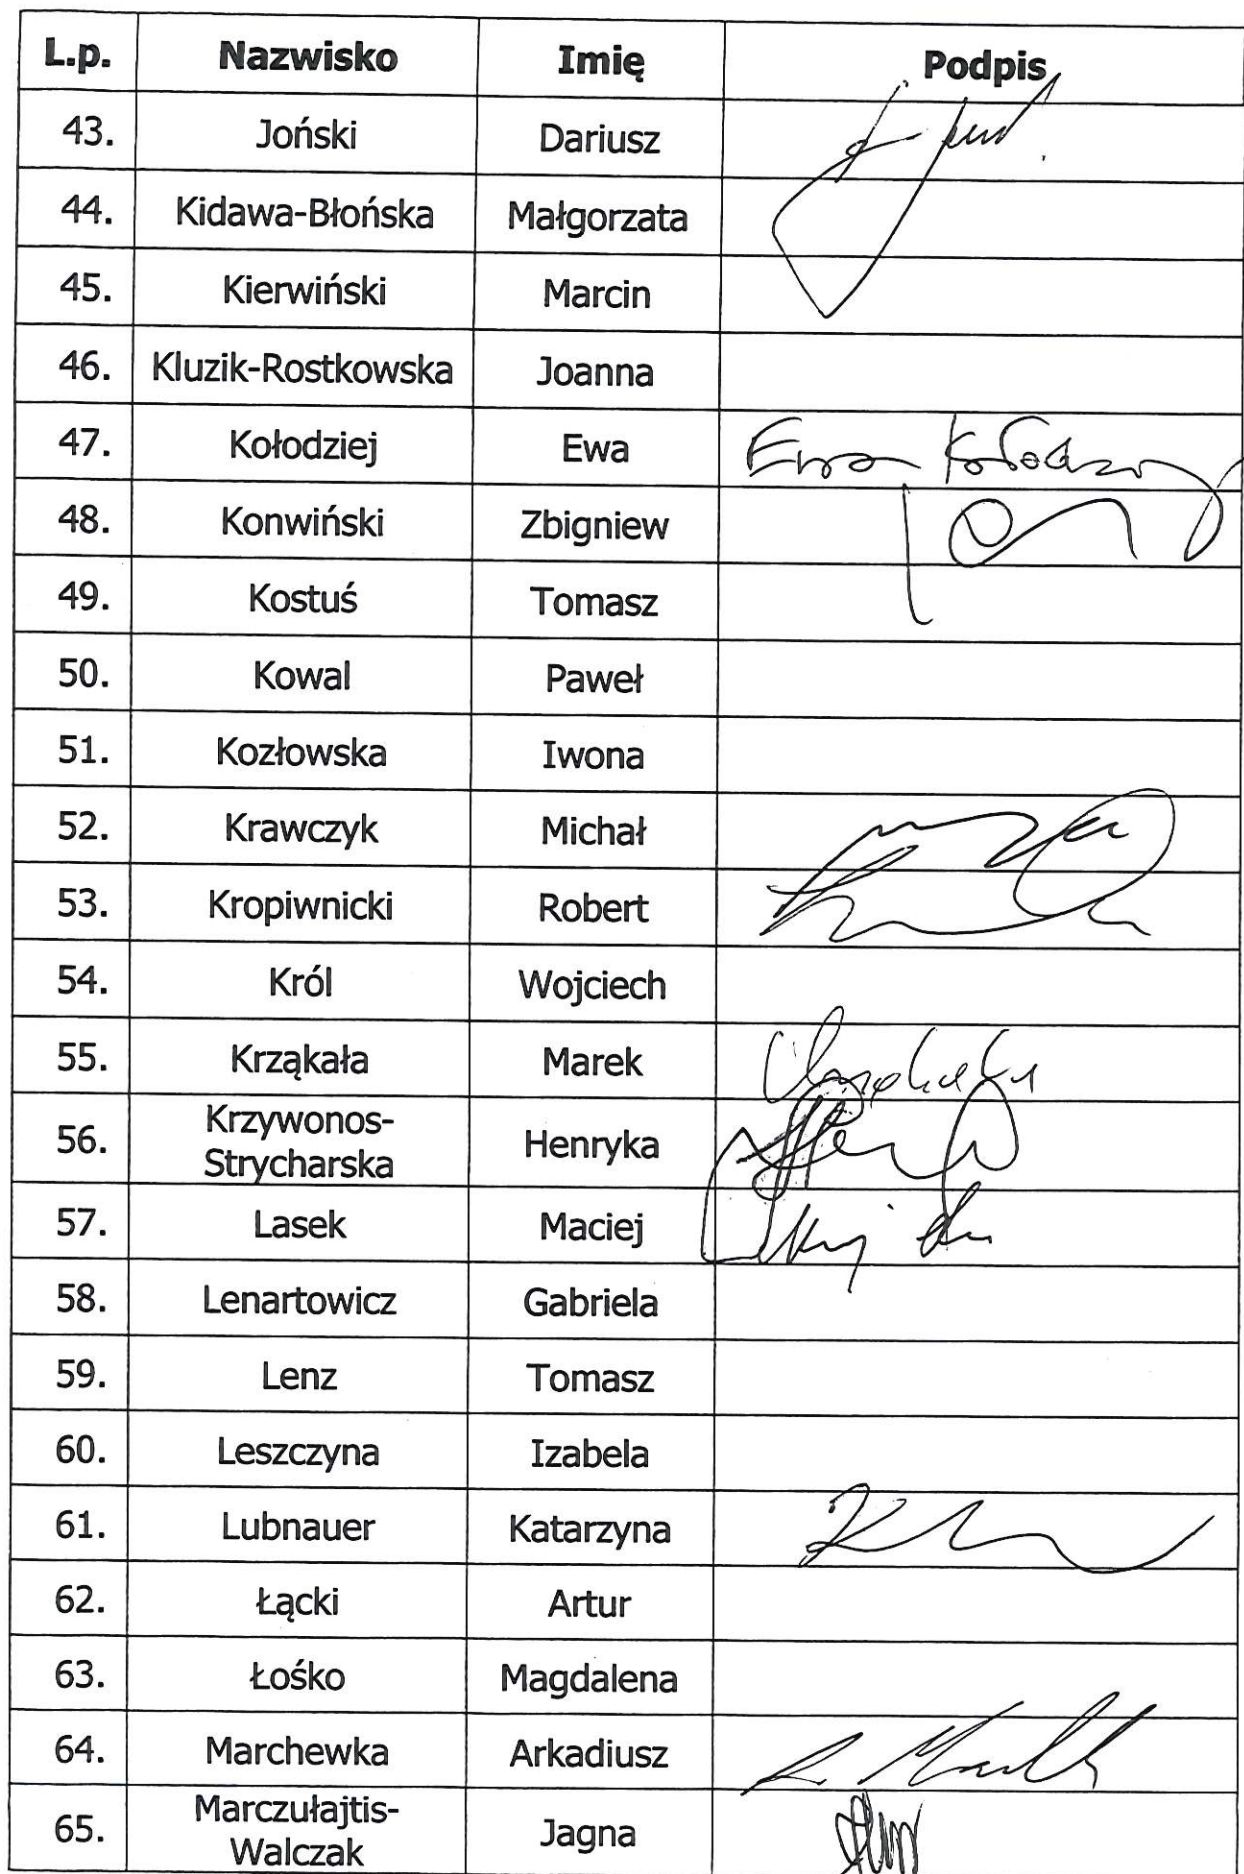 L.p. Nazwisko Imię Podpis
43. Joński Dariusz
44. Kidawa-Błońska Małgorzata
45. Kierwiński Marcin
46. Kluzik-Rostkowska Joanna
47. Kołodziej Ewa Ewa Kołodziej
48. Konwiński Zbigniew
49. Kostuś Tomasz
50. Kowal Paweł
51. Kozłowska Iwona
52. Krawczyk Michał
53. Kropiwnicki Robert
54. Król Wojciech
55. Krząkała Marek
56. Krzywonos-
Strycharska Henryka
57. Lasek Maciej
58. Lenartowicz Gabriela
59. Lenz Tomasz
60. Leszczyna Izabela
61. Lubnauer Katarzyna
62. Łącki Artur
63. Łośko Magdalena
64. Marchewka Arkadiusz
65. Marczułajtis-
Walczak Jagna